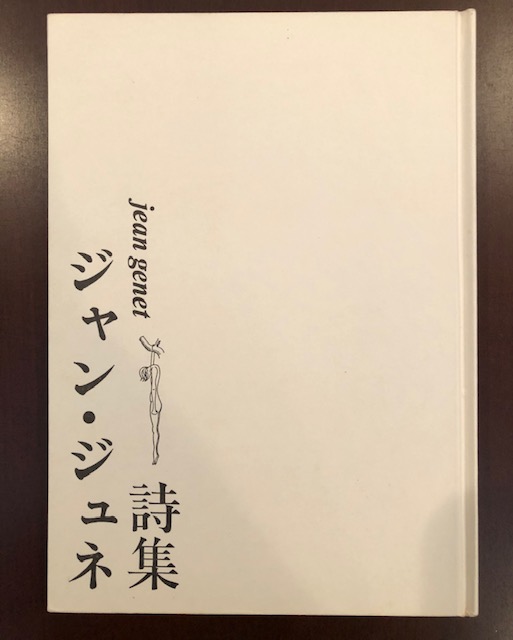 jean genet
詩集
ジャン・ジュネ